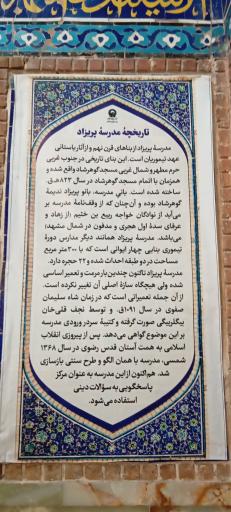 تاریخچهٔ مدرسهٔ پریزاد
مدرسهٔ پریزاد از بناهای قرن نهم و از آثار باستانی
عهد تیموریان است. این بنای تاریخی در جنوب غربی
حرم مطهر و شمال غربی مسجد گوهرشاد واقع شده و
همزمان با اتمام مسجد گوهرشاد در سال ۸۲۳هـ.ق.
ساخته شده است. بانی مدرسه، بانو پریزاد ندیمهٔ
گوهرشاد بوده و آن‌چنان که از وقفنامهٔ مدرسه بر
می‌آید از نوادگان خواجه ربیع بن خثیم (از زهاد و
عرفای سدهٔ اول هجری و مدفون در شمال مشهد)
می‌باشد. مدرسهٔ پریزاد همانند دیگر مدارس دورهٔ
تیموری بنایی چهار ایوانی است که با ۳۰۰متر مربع
مساحت در دو طبقه احداث شده و ۲۲ حجره دارد.
مدرسهٔ پریزاد تاکنون چندین بار مرمت و تعمیر اساسی
شده ولی هیچگاه سازهٔ اصلی آن تغییر نکرده است.
از آن جمله تعمیراتی است که در زمان شاه سلیمان
صفوی در سال ۱۰۹۱ق. و توسط نجف قلی‌خان
بیگلربیگی صورت گرفته و کتیبهٔ سردر ورودی مدرسه
بر این موضوع گواهی می‌دهد. پس از پیروزی انقلاب
اسلامی به همت آستان قدس رضوی در سال ۱۳۶۸
شمسی، مدرسه با همان الگو و طرح سنتی بازسازی
شد. هم‌اکنون از این مدرسه به عنوان مرکز
پاسخگویی به سؤالات دینی
استفاده می‌شود.